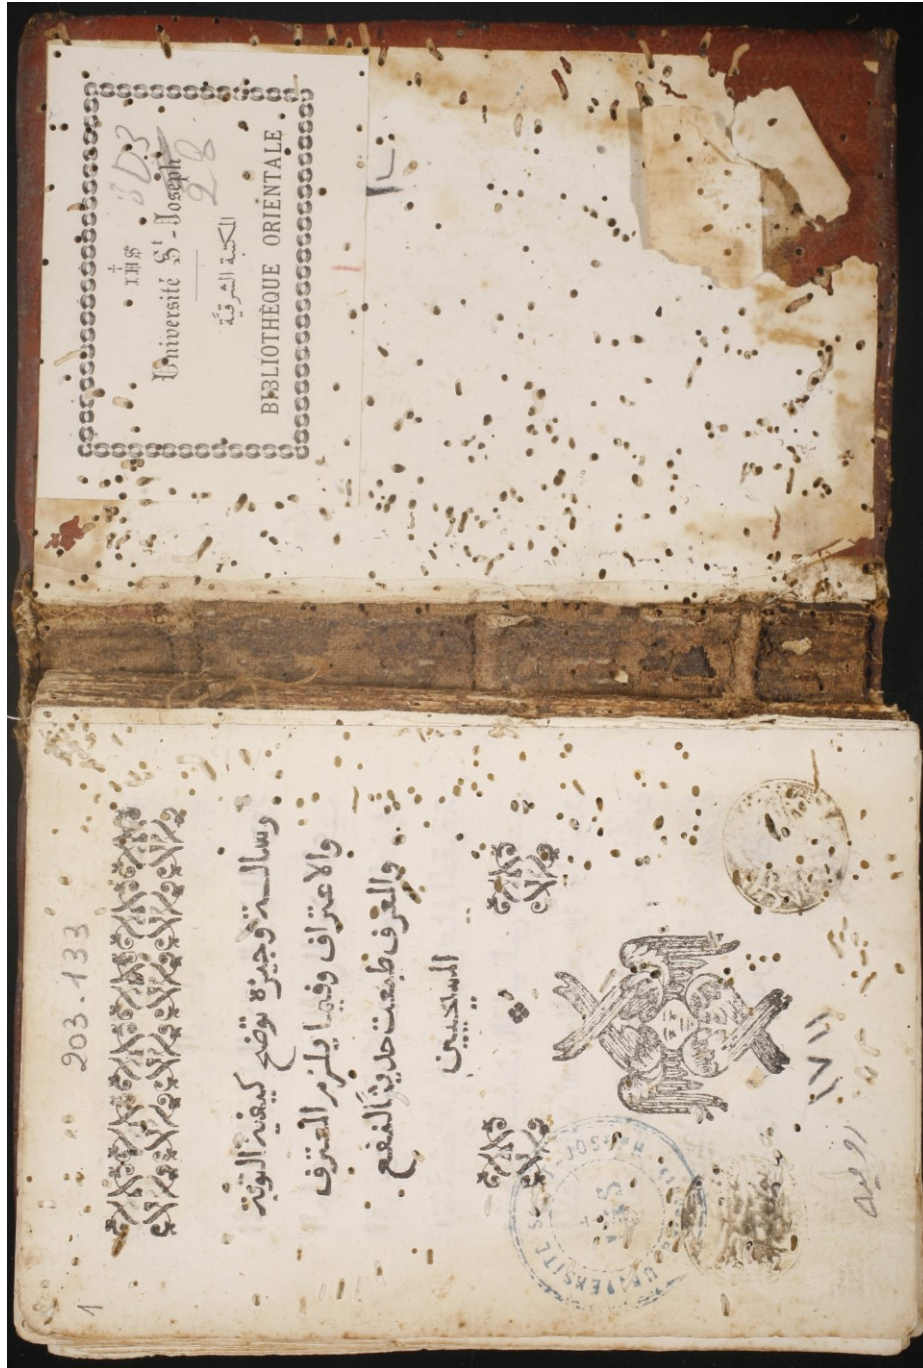 IHS
Université St-Joseph
المكتبة الشرقية
BIBLIOTHÈQUE ORIENTALE
28
203-133
رسالة وجيزة توضح كيفية التوبة
والاعتراف وفيما يلزم المعترف
والمعرف طبعت حديثًا لنفع
المسيحيين
١٧١١
1